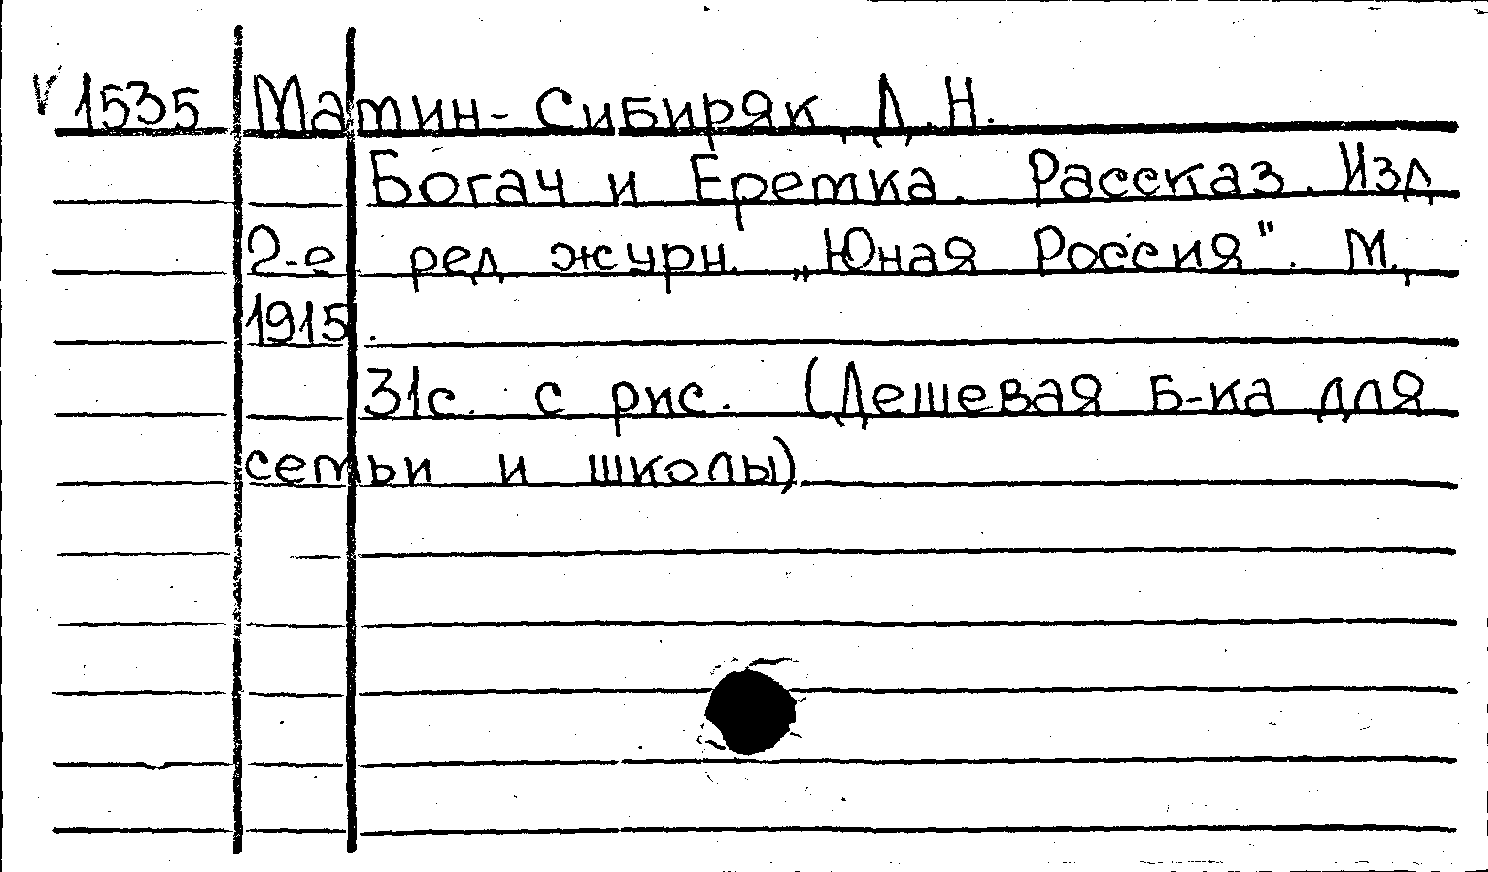 √ 1535 Матин-Сибиряк Д.Н.
Богач и Еретка. Рассказ. Изд
2-е ред журн. „Юная Россия". М.,
1915.
31с. с рис. (Дешевая Б-ка для
семьи и школы)